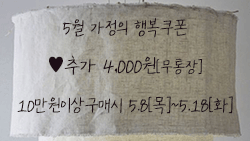 5월 가정의 행복쿠폰
♥추가 4,000원[무통장]
10만원이상구매시 5.8[목]~5.18[화]